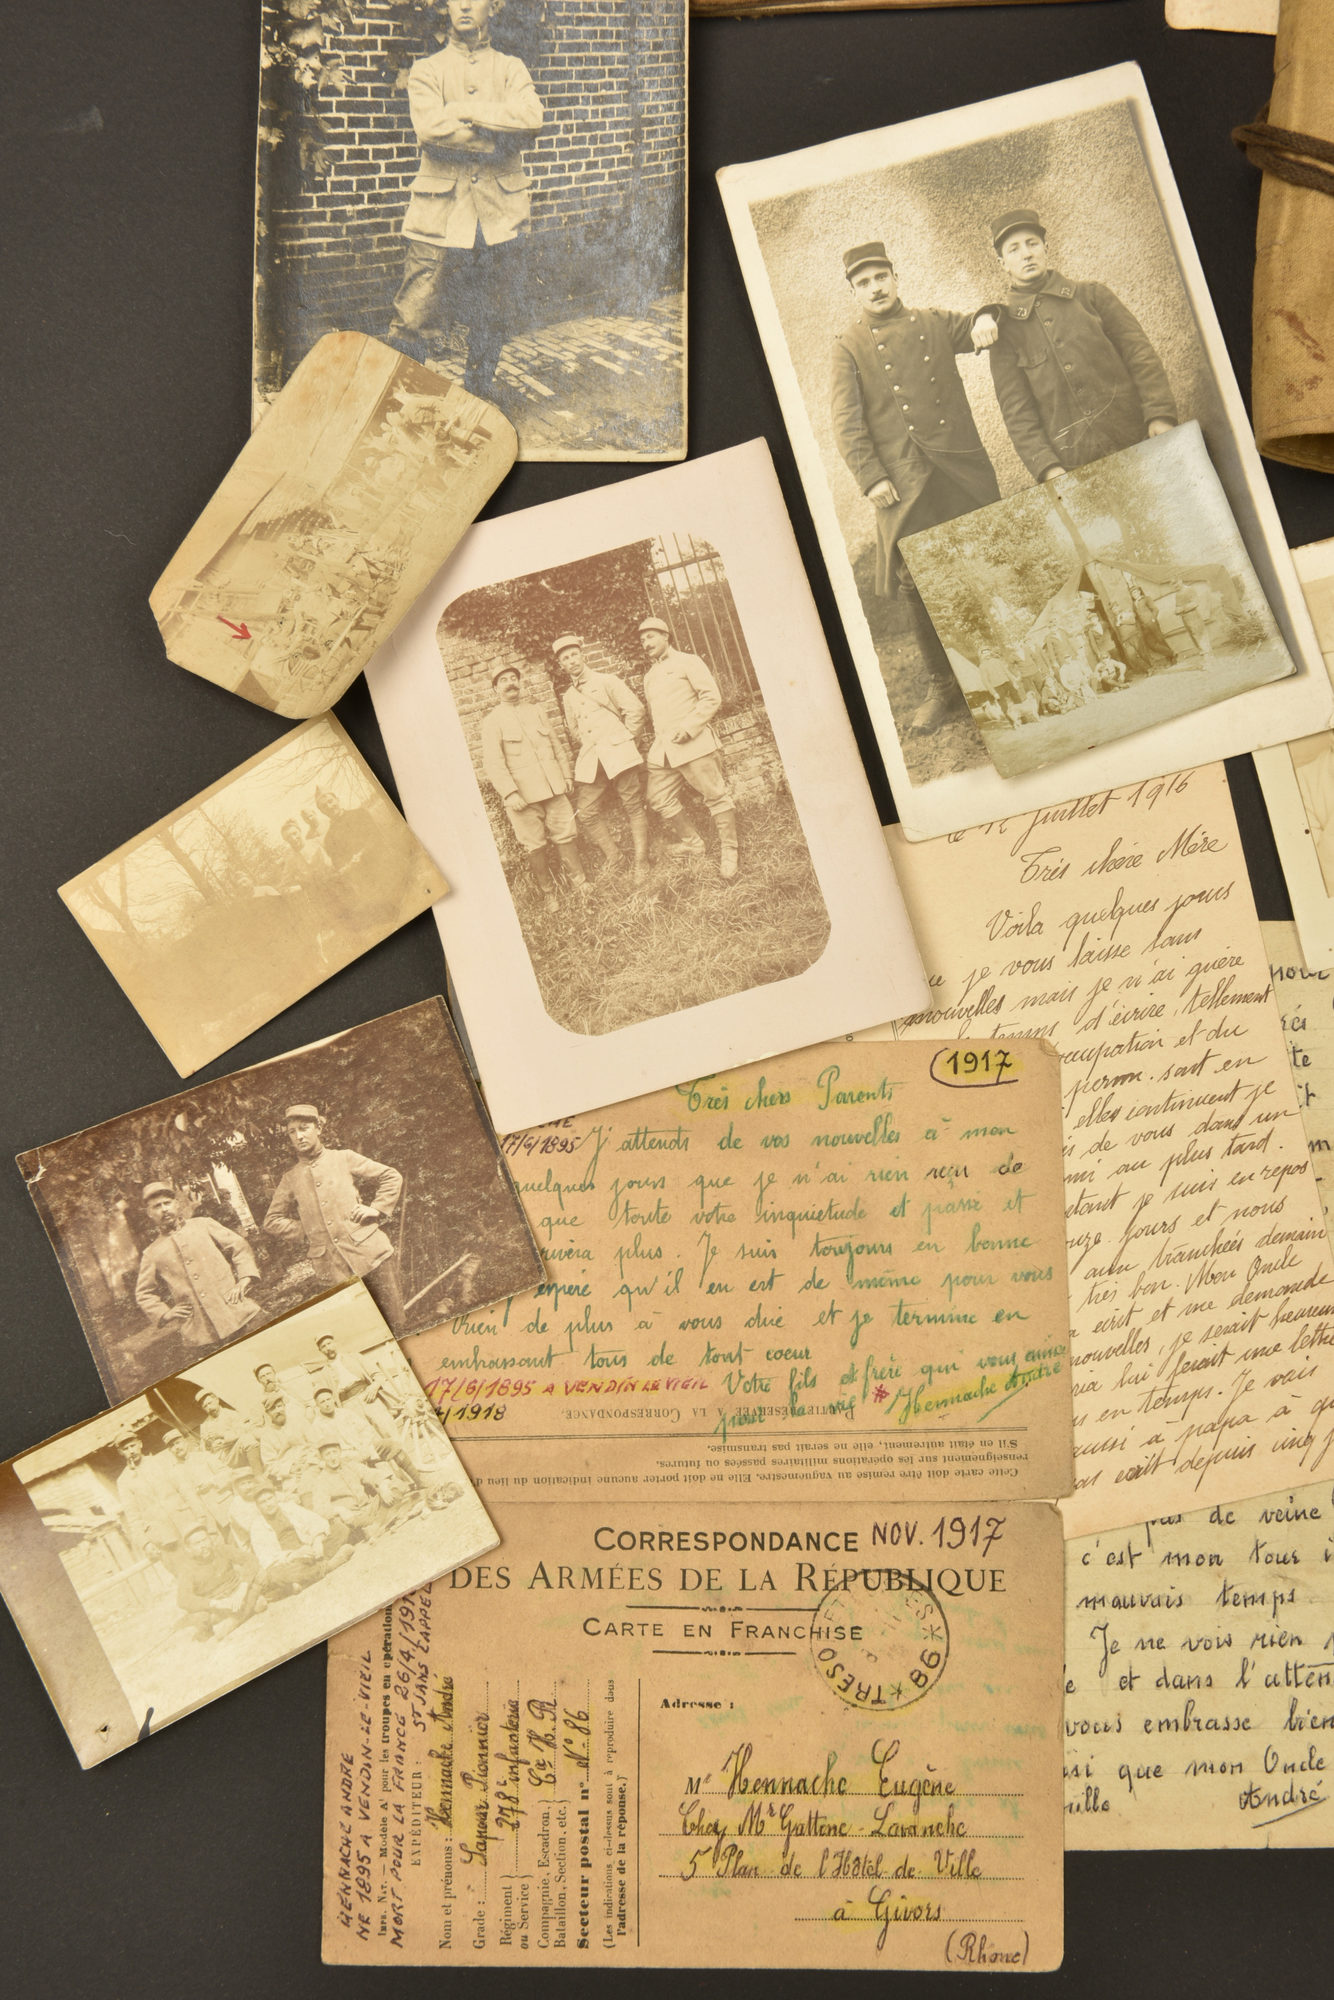 Juillet 1916
Très chère Mère
Voila quelques jours
je vous laisse sans
nouvelles mais je n'ai guère
temps d'écrire, tellement
occupation et du
perm. sont en
elles continuent je
de vous dans un
mi au plus tard.
je suis en repos
jours et nous
aux tranchées demain
très bon. Mon Oncle
écrit et me demande
nouvelles, je serait heureux
lui ferait une lettre
en temps. Je vais
aussi à papa à
écrit depuis cinq
1917
Très chers Parents
17/6/1895 J'attends de vos nouvelles à mon
quelques jours que je n'ai rien reçu de
que toute votre inquietude et passé et
plus. Je suis toujours en bonne
espère qu'il en est de même pour vous
Rien de plus à vous dire et je termine en
embrassant tous de tout coeur
17/6/1895 A VENDIN LE VIEIL Votre fils et frère qui vous aime
1918
pour la vie * Hennache André
PARTIE RÉSERVÉE A LA CORRESPONDANCE.
Cette carte doit être remise au vaguemestre. Elle ne doit porter aucune indication du lieu
renseignement sur les opérations militaires passées ou futures.
S'il en était autrement, elle ne serait pas transmise.
CORRESPONDANCE NOV. 1917
DES ARMÉES DE LA RÉPUBLIQUE
CARTE EN FRANCHISE
TRESOR ET POSTES * 98 *
HENNACHE ANDRE
NE 1895 A VENDIN-LE-VIEIL
IMP. NAT. — Modèle A' pour les troupes en opérations
MORT POUR LA FRANCE 26/4/191
EXPÉDITEUR :
ST JANS CAPPEL
Nom et prénoms : Hennache André
Grade : Sapeur Pionnier
Régiment
ou Service) 278e infanterie
Compagnie, Escadron,
Bataillon, Section, etc. Cie H. R
Secteur postal n° N° 86
(Les indications ci-dessus sont à reproduire dans
l'adresse de la réponse.)
Adresse :
Mr Hennache Eugène
Chez Mr Guttone-Lavanche
5 Place de l'Hôtel de Ville
à Givors
(Rhône)
pas de veine
c'est mon tour
mauvais temps
Je ne vois rien
et dans l'atten
vous embrasse bien
que mon Oncle
André